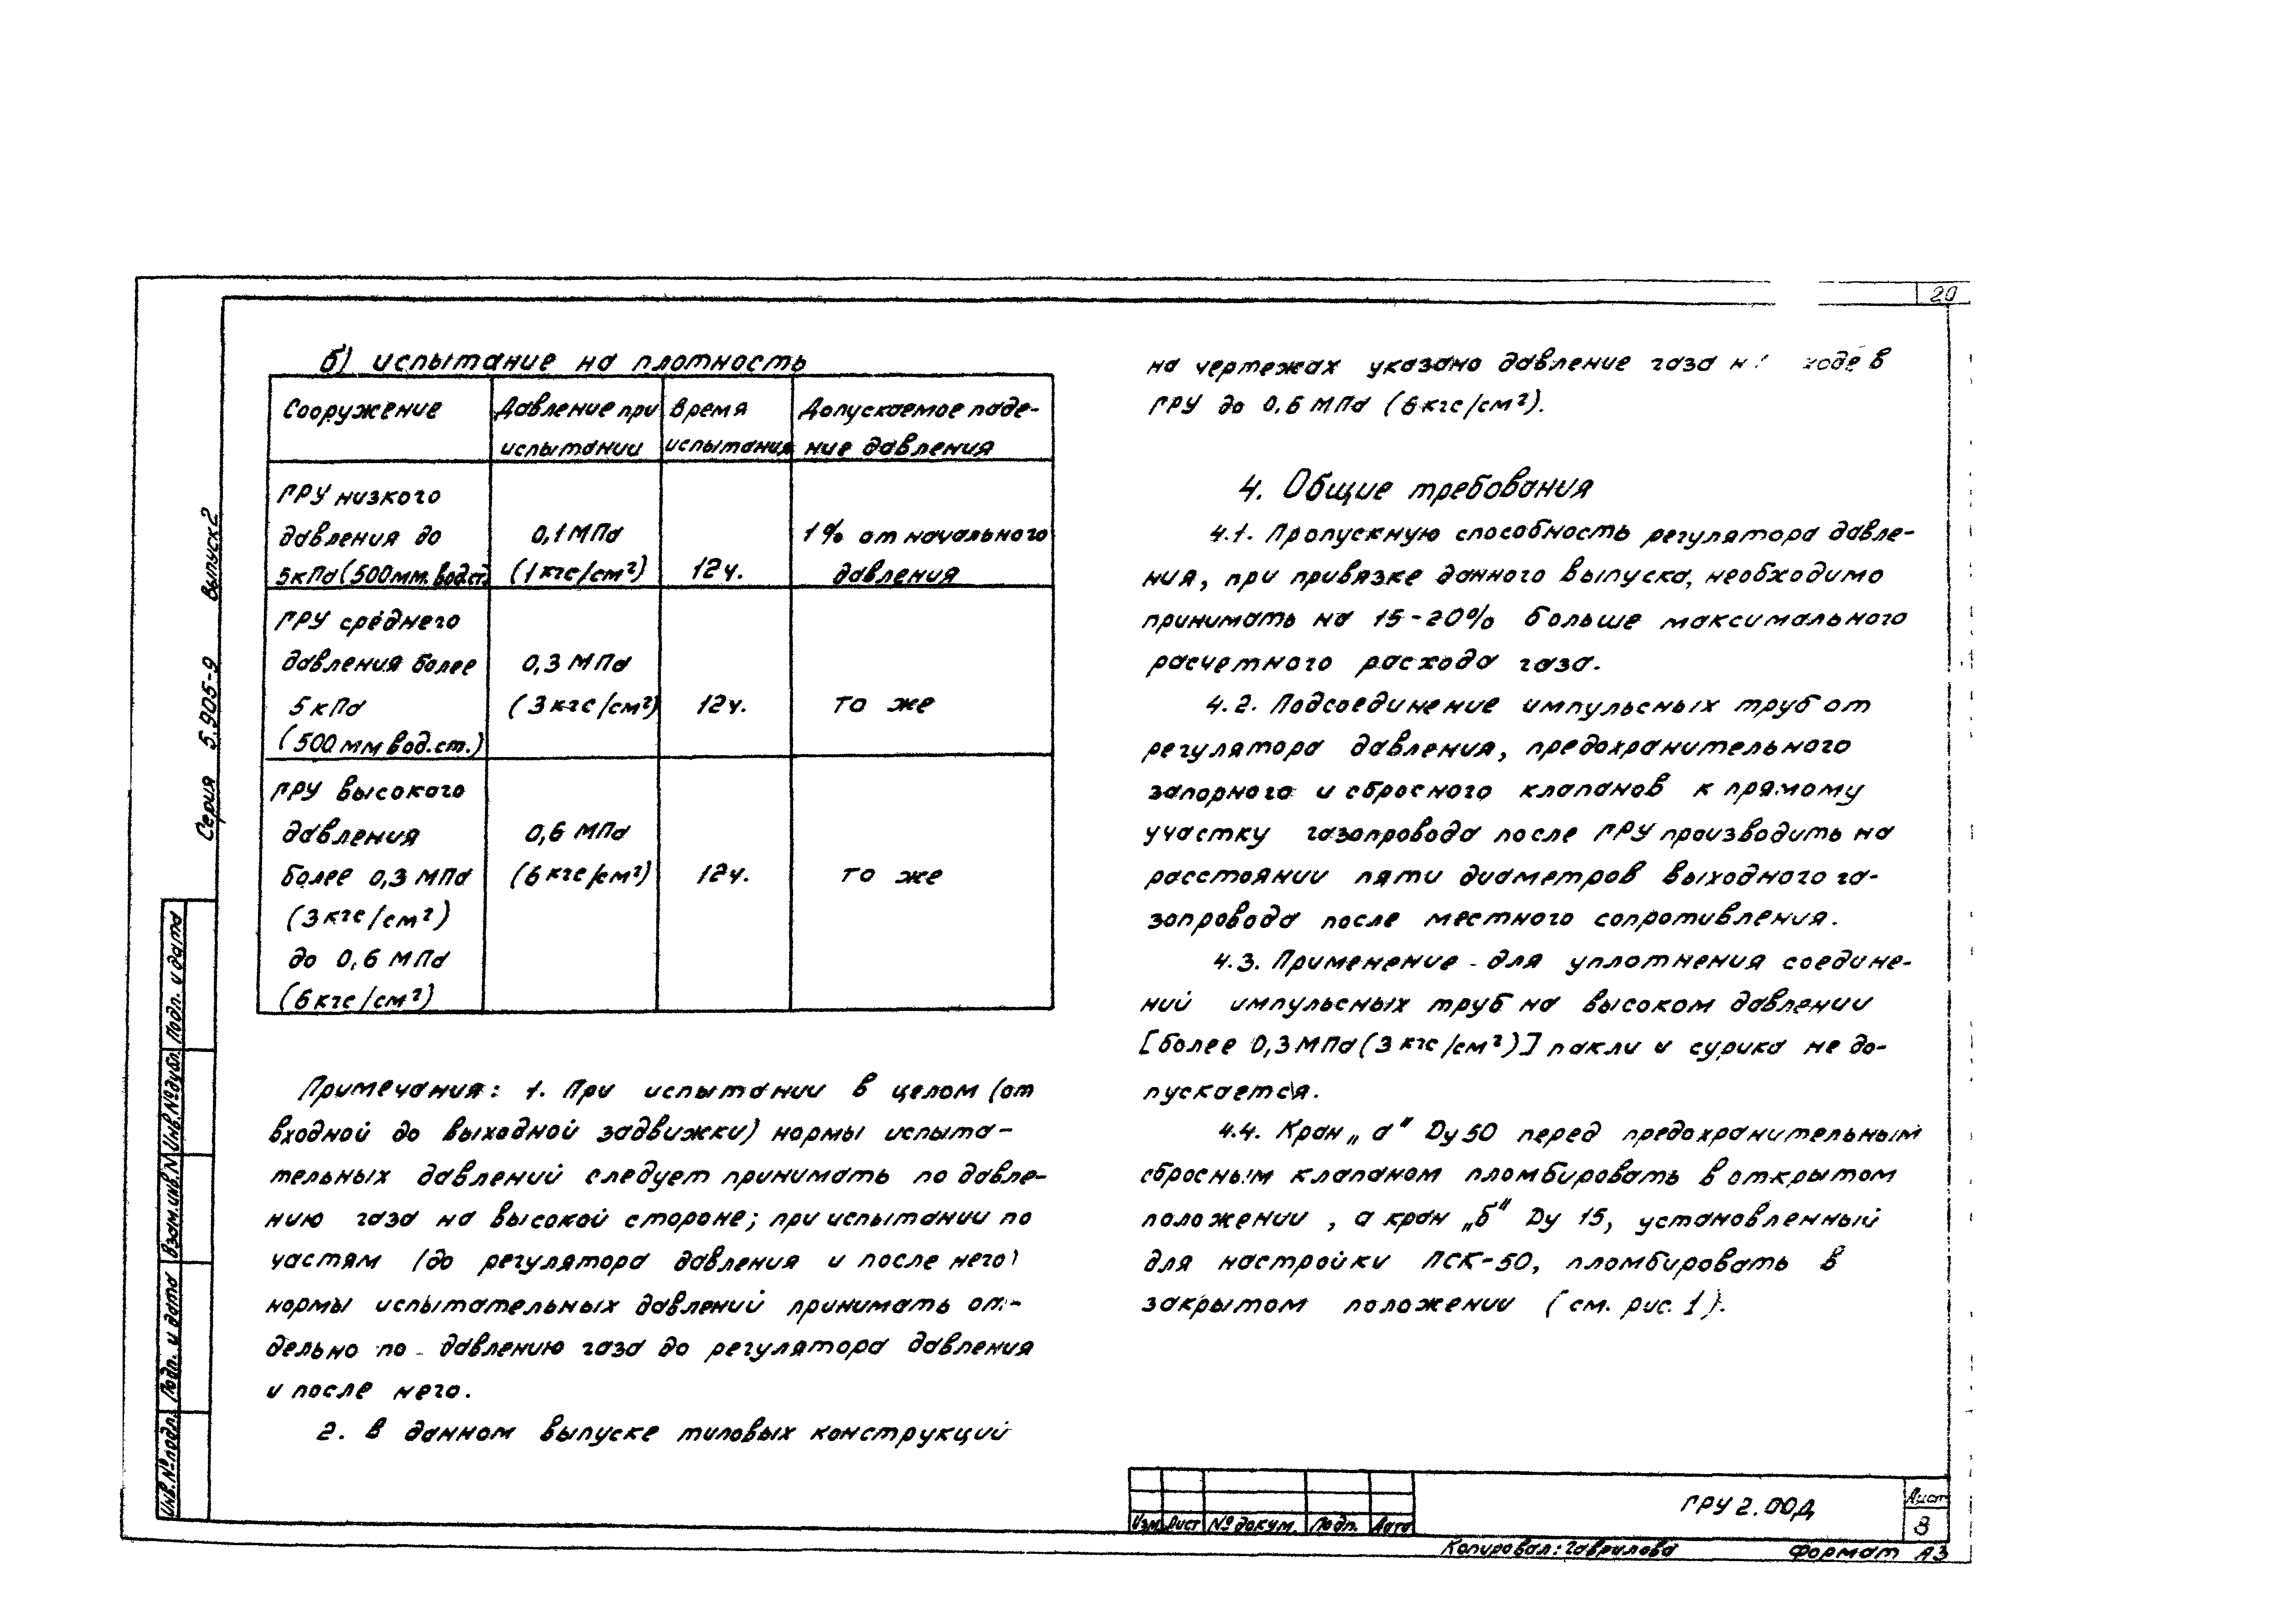 20
Серия 5.905-9 выпуск 2
б) испытание на плотность
Сооружение
Давление при
испытании
время
испытания
Допускаемое паде-
ние давления
ГРУ низкого
давления до
5кПа (500мм.вод.ст.)
0,1 МПа
(1 кгс/см²)
12ч.
1% от начального
давления
ГРУ среднего
давления более
5 кПа
(500 мм вод.ст.)
0,3 МПа
(3 кгс/см²)
12ч.
то же
ГРУ высокого
давления
более 0,3 МПа
(3 кгс/см²)
до 0,6 МПа
(6 кгс/см²)
0,6 МПа
(6 кгс/см²)
12ч.
то же
Примечания: 1. При испытании в целом (от
входной до выходной задвижки) нормы испыта-
тельных давлений следует принимать по давле-
нию газа на высокой стороне; при испытании по
частям (до регулятора давления и после него)
нормы испытательных давлений принимать от-
дельно по давлению газа до регулятора давления
и после него.
2. в данном выпуске типовых конструкций
на чертежах указано давление газа в
ГРУ до 0,6 МПа (6 кгс/см²).
4. Общие требования
4.1. Пропускную способность регулятора давле-
ния, при привязке данного выпуска, необходимо
принимать на 15-20% больше максимального
расчетного расхода газа.
4.2. Подсоединение импульсных труб от
регулятора давления, предохранительного
запорного и сбросного клапанов к прямому
участку газопровода после ГРУ производить на
расстоянии пяти диаметров выходного га-
зопровода после местного сопротивления.
4.3. Применение для уплотнения соедине-
ний импульсных труб на высоком давлении
[более 0,3 МПа (3 кгс/см²)] пакли и сурика не до-
пускается.
4.4. Кран „а" Ду 50 перед предохранительным
сбросным клапаном пломбировать в открытом
положении, а кран „б" Ду 15, установленный
для настройки ПСК-50, пломбировать в
закрытом положении (см. рис. 1).
Инв.№подл.
Подп. и дата
Взам.инв.N
Инв.№дубл.
Подп. и дата
Изм
Лист
№ докум.
Подп.
Дата
ГРУ 2.00Д
Лист
8
Копировал: Гаврилова
Формат А3